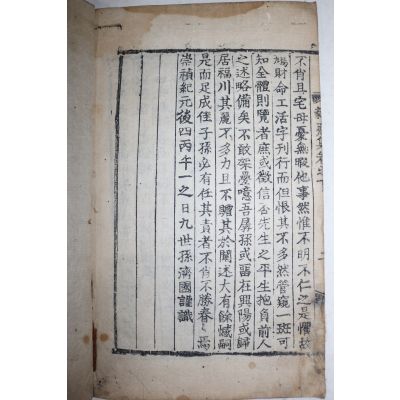 不肖且宅母憂無暇他事然惟不明不仁之是懼故
鳩財命工活字刊行而但恨其不多然管窺一斑可
知全體則覽者庶或徵信吾先生之平生抱負前人
之述略備矣不敢架疊噫吾孱孫或留在興陽或歸
居福川其麗不多力且不贍其於闡述大有餘憾嗣
是而足成佳子孫必有任其責者不肖不勝眷眷焉
崇禎紀元後四丙午一之日九世孫濟國謹識